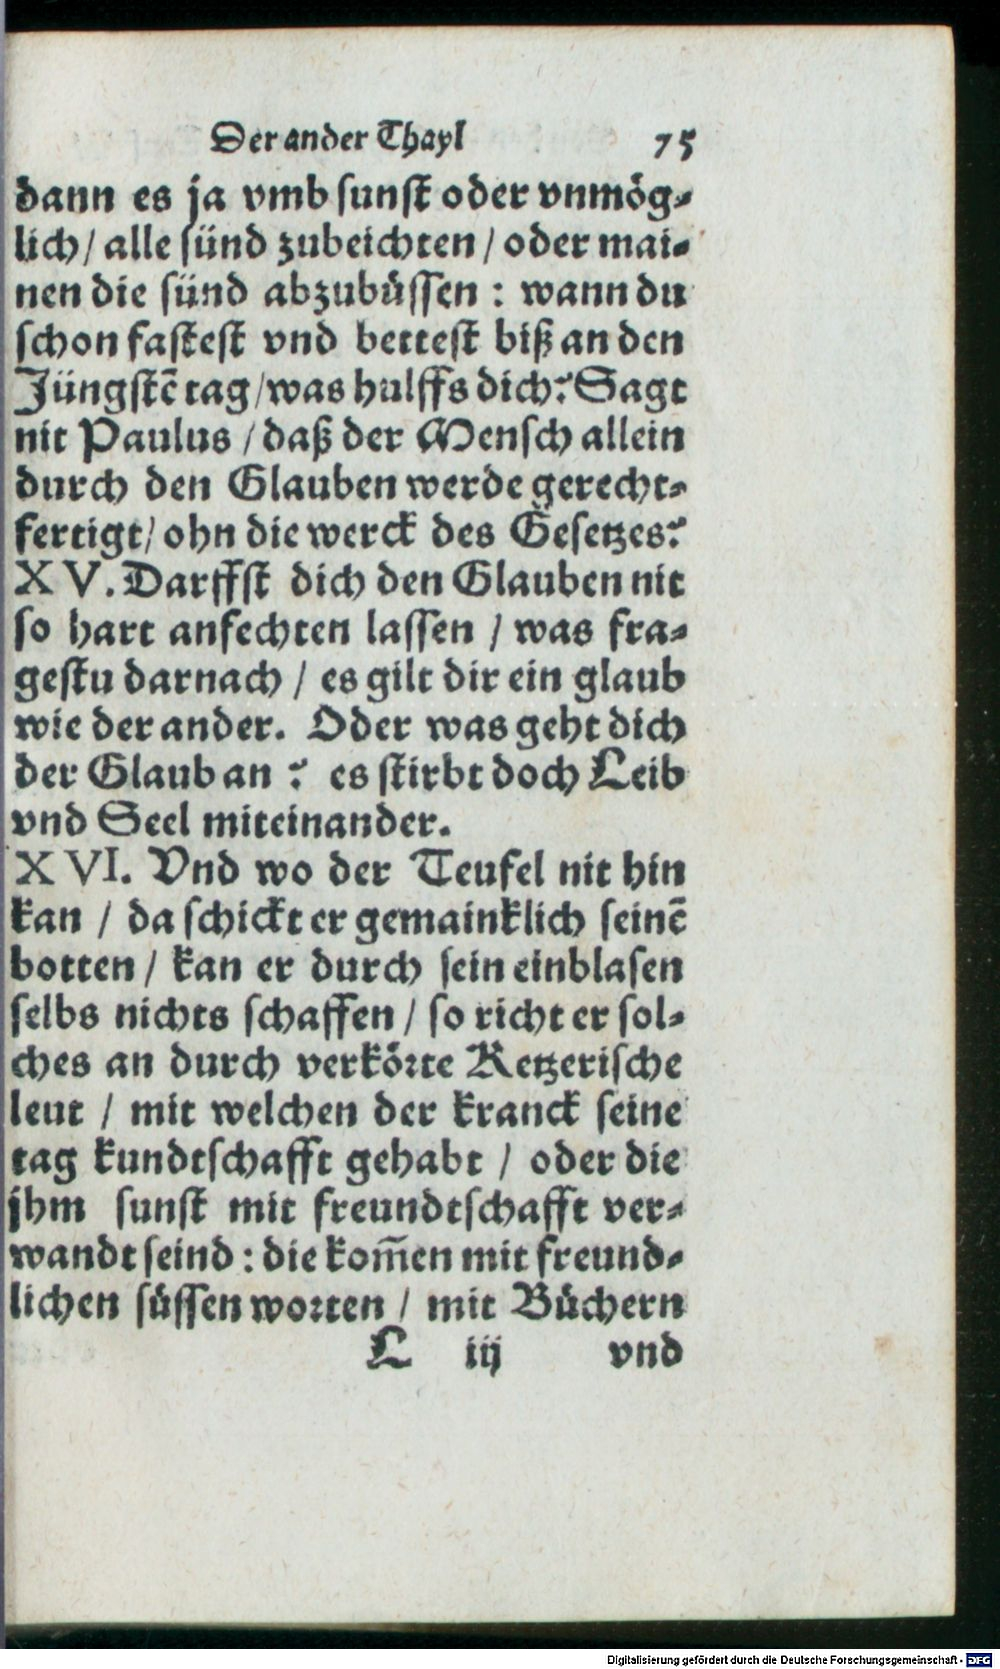 Der ander Thayl 75
dann es ja vmb sunst oder vnmög-
lich / alle sünd zubeichten / oder mai-
nen die sünd abzubüssen : wann du
schon fastest vnd bettest biß an den
Jüngstē tag / was hulffs dich? Sagt
nit Paulus / daß der Mensch allein
durch den Glauben werde gerecht-
fertigt / ohn die werck des Gesetzes?
XV. Darffst dich den Glauben nit
so hart anfechten lassen / was fra-
gestu darnach / es gilt dir ein glaub
wie der ander. Oder was geht dich
der Glaub an ? es stirbt doch Leib
vnd Seel miteinander.
XVI. Vnd wo der Teufel nit hin
kan / da schickt er gemainklich seinē
botten / kan er durch sein einblasen
selbs nichts schaffen / so richt er sol-
ches an durch verkörte Ketzerische
leut / mit welchen der kranck seine
tag kundtschafft gehabt / oder die
jhm sunst mit freundtschafft ver-
wandt seind : die kom̄en mit freund-
lichen süssen worten / mit Büchern
L iij vnd
Digitalisierung gefördert durch die Deutsche Forschungsgemeinschaft - DFG